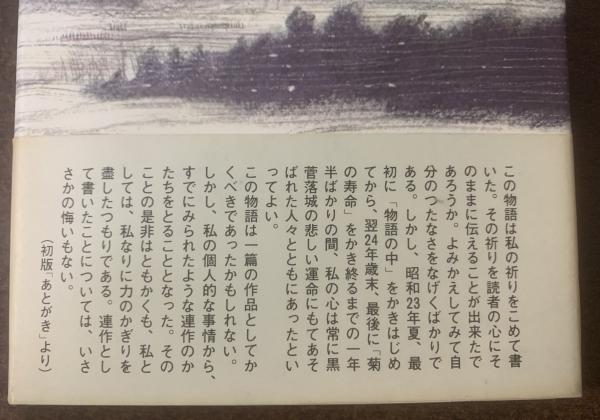 この物語は私の祈りをこめて書
いた。その祈りを読者の心にそ
のままに伝えることが出来たで
あろうか。よみかえしてみて自
分のつたなさをなげくばかりで
ある。しかし、昭和23年夏、最
初に「物語の中」をかきはじめ
てから、翌24年歳末、最後に「菊
の寿命」をかき終るまでの一年
半ばかりの間、私の心は常に黒
菅落城の悲しい運命にもてあそ
ばれた人々とともにあったとい
ってよい。
この物語は一篇の作品としてか
くべきであったかもしれない。
しかし、私の個人的な事情から、
すでにみられたような連作のか
たちをとることとなった。その
ことの是非はともかくも、私と
しては、私なりに力のかぎりを
盡したつもりである。連作とし
て書いたことについては、いさ
さかの悔いもない。
（初版「あとがき」より）